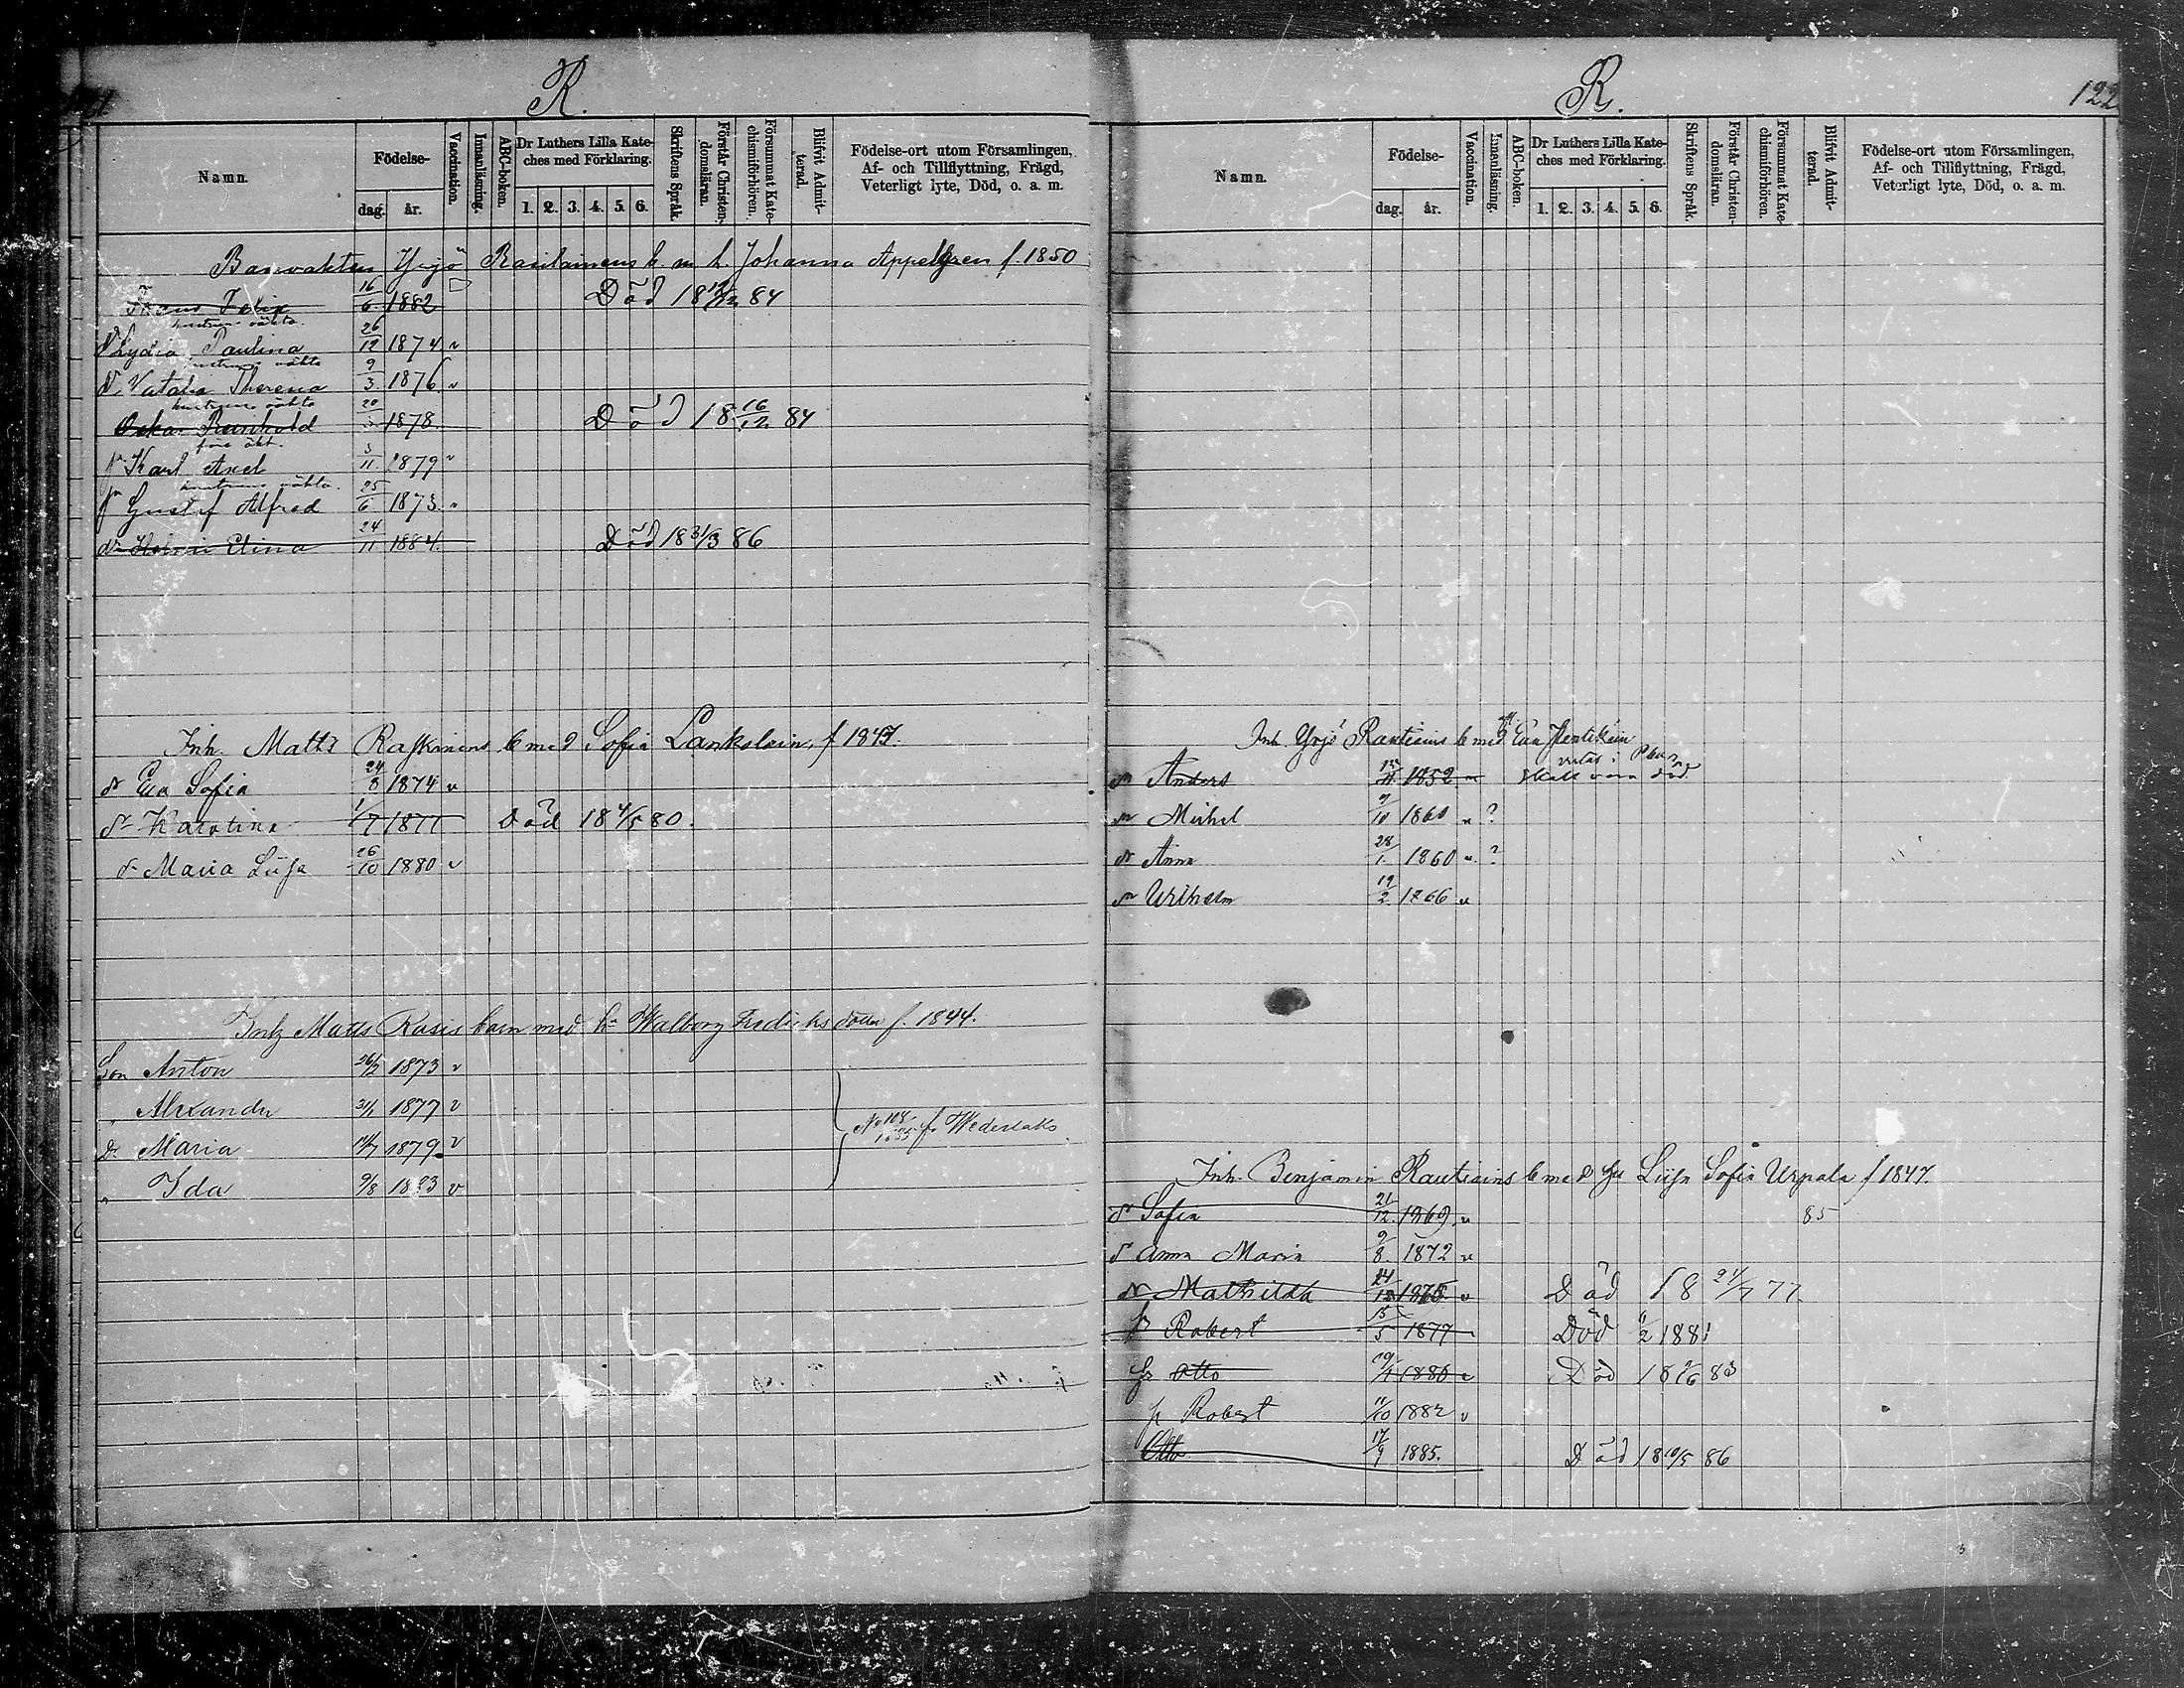 R.
Namn.
Födelse-
dag. år.
Vaccination.
Innanläsning.
ABC-boken.
Dr Luthers Lilla Kate-
ches med Förklaring.
1. 2. 3. 4. 5. 6.
Skriftens Språk.
Förstår Christen-
domsläran.
Försummat Kate-
chismiförhören.
Blifvit Admit-
terad.
Födelse-ort utom Församlingen,
Af- och Tillflyttning, Frägd,
Veterligt lyte, Död, o. a. m.
Banvakten Yrjö Rasilainens b. m. h. Johanna Appelgren f. 1850
Felix 16/6 1882 Död 18 /12 84
hustruns oäkta
Lydia Paulina 26/12 1874 v
hustruns oäkta
Theresa 9/3 1876 v
hustruns oäkta
Oskar Reinhold 20/ 1878 Död 18 16/12 84
före äkt.
Karl Axel 3/11 1879 v
hustruns oäkta
Gustaf Alfred 25/6 1873 v
dr Elina 24/11 1884. Död 18 31/3 86
Inh. Matts Raskinens b med Sofia Lankelain, f 1847.
dr Eva Sofia 24/8 1874 v
dr Karolina 1/7 1877 Död 18 4/5 80.
dr Maria Liisa 26/10 1880 v
Inh Matts Rasis barn med h. Walborg Fredriksdotter f. 1844.
Son Anton 26/2 1873 v
" Alexander 31/1 1877 v
Dr Maria 1879 v
" Ida 9/8 1883 v
No 104 1885 fr Wederlaks
R.
122
Namn.
Födelse-
dag. år.
Vaccination.
Innanläsning.
ABC-boken.
Dr Luthers Lilla Kate-
ches med Förklaring.
1. 2. 3. 4. 5. 6.
Skriftens Språk.
Förstår Christen-
domsläran.
Försummat Kate-
chismiförhören.
Blifvit Admit-
terad.
Födelse-ort utom Församlingen,
Af- och Tillflyttning, Frägd,
Veterligt lyte, Död, o. a. m.
Inh. Yrjö Rautiains b med Eva Pentikäin
Anders 15/11 1852 skall vara död
Mikel 9/10 1860 v ?
dr Anna 28/1. 1860 v. ?
Wilhelm 19/2 1866 v
Inh. Benjamin Rautiains b med hu Liisa Sofia Urpala f 1847.
dr Sofia 21/12. 1869 v 85
d Anna Maria 9/8 1872 v
dr Mathilda 24/ 1875 v Död 18 21/7 77
Robert 15/5 1877 Död /2 1881
Otto 1880 v Död 18 /6 83
p Robert 11/10 1882 v
Otto 17/9 1885. Död 18 10/5 86